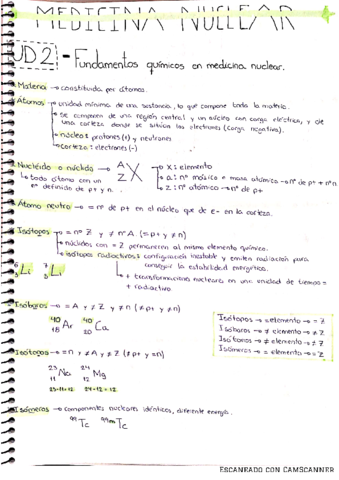 MEDICINA NUCLEAR
UD2 - Fundamentos químicos en medicina nuclear.
Materia → constituida por átomos.
Átomos → unidad mínima de una sustancia, lo que compone toda la materia.
→ se componen de una región central y un núcleo con carga eléctrica, y de
una corteza donde se sitúan los electrones (carga negativa).
• núcleo: protones (+) y neutrones
• corteza: electrones (-)
Nucleido o núclido → A Z X → x: elemento
↳ todo átomo con un → a: nº másico = masa atómica → nº de p+ + nº n
nº definido de p+ y n. → z: nº atómico → nº de p+
Átomo neutro → = nº de p+ en el núcleo que de e- en la corteza.
Isótopos → = nº Z y ≠ nº A. (= p+ y ≠ n)
• núclidos con = Z permanecen al mismo elemento químico.
• isótopos radiactivos: configuración inestable y emiten radiación para
conseguir la estabilidad energética.
6 3 Li 7 3 Li
↳ + transformaciones nucleares en una unidad de tiempo =
+ radiactivo
Isóbaros → = A y ≠ Z y ≠ n (≠ p+ y ≠ n)
40 18 Ar 40 20 Ca
Isótopos → = elemento → = Z
Isóbaros → ≠ elemento → ≠ Z
Isótonos → ≠ elemento → ≠ Z
Isómeros → = elemento → = Z
Isótonos → = n y ≠ A y ≠ Z (≠ p+ y = n)
23 11 Na 24 12 Mg
23-11=12 24-12=12
Isómeros → componentes nucleares idénticos, diferente energía.
99 Tc 99m Tc
ESCANEADO CON CAMSCANNER